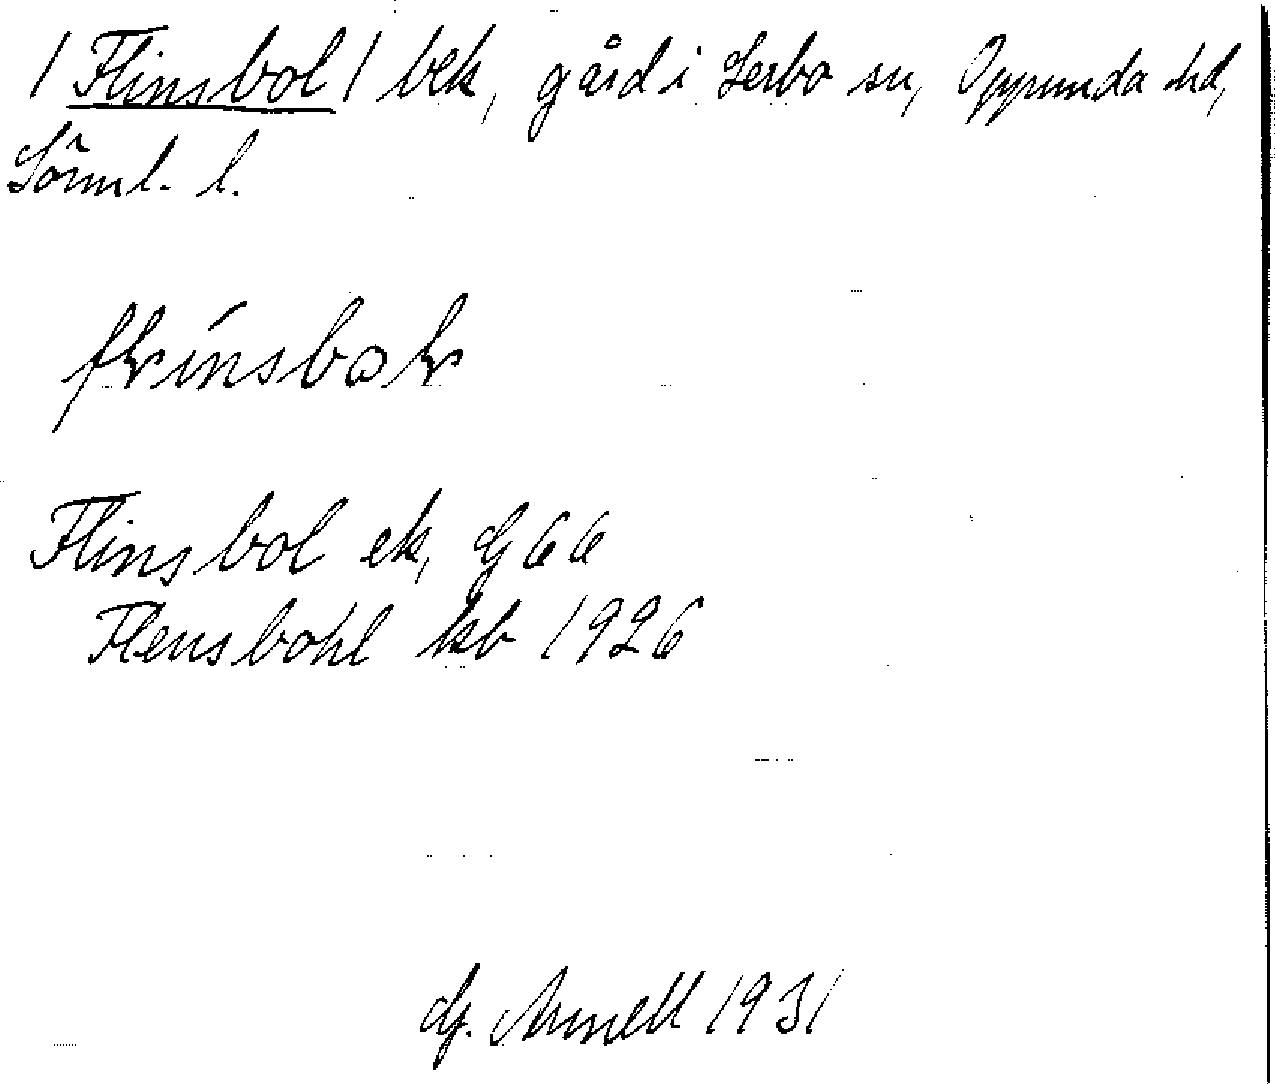 / Flinsbol / bek, gård i Lerbo sn, Oppunda hd,
Söml. l.
Flinsbol ek, G 66
Flensbohl kb 1926
G. Arnell 1931